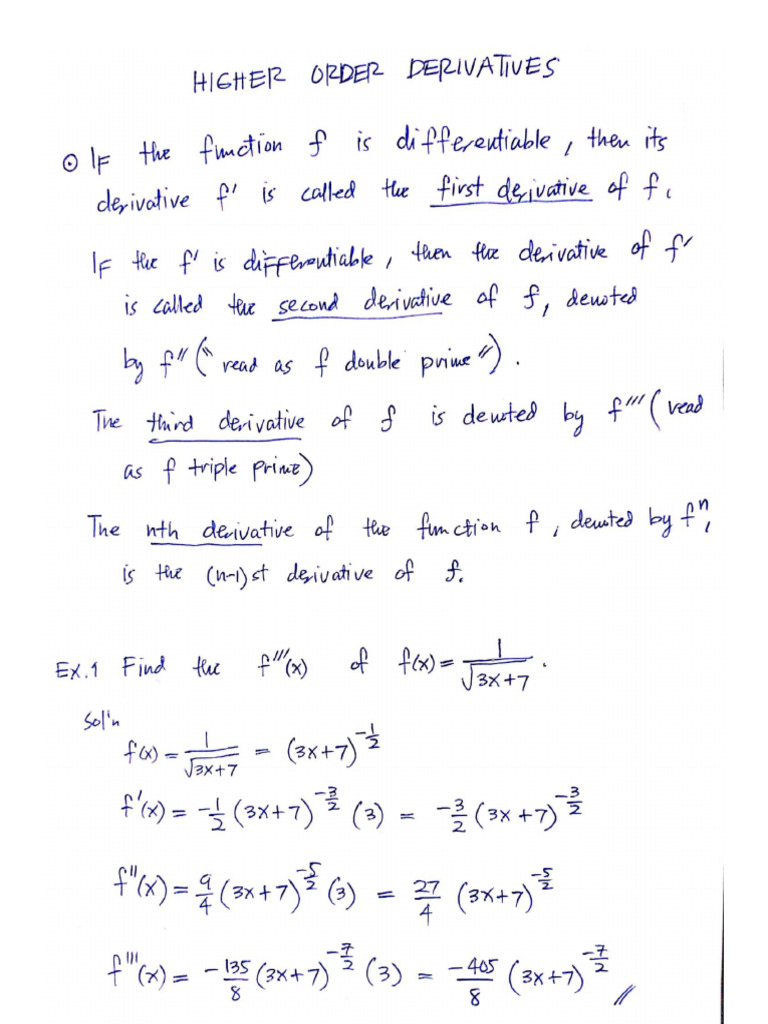 HIGHER ORDER DERIVATIVES
⊙ IF the function f is differentiable, then its
derivative f' is called the first derivative of f.
IF the f' is differentiable, then the derivative of f'
is called the second derivative of f, denoted
by f'' ("read as f double prime").
The third derivative of f is denoted by f''' (read
as f triple prime)
The nth derivative of the function f, denoted by fⁿ,
is the (n-1)st derivative of f.
Ex.1 Find the f'''(x) of f(x) = 1/√(3x+7).
Sol'n
f(x) = 1/√(3x+7) = (3x+7)^(-1/2)
f'(x) = -1/2 (3x+7)^(-3/2) (3) = -3/2 (3x+7)^(-3/2)
f''(x) = 9/4 (3x+7)^(-5/2) (3) = 27/4 (3x+7)^(-5/2)
f'''(x) = -135/8 (3x+7)^(-7/2) (3) = -405/8 (3x+7)^(-7/2) //